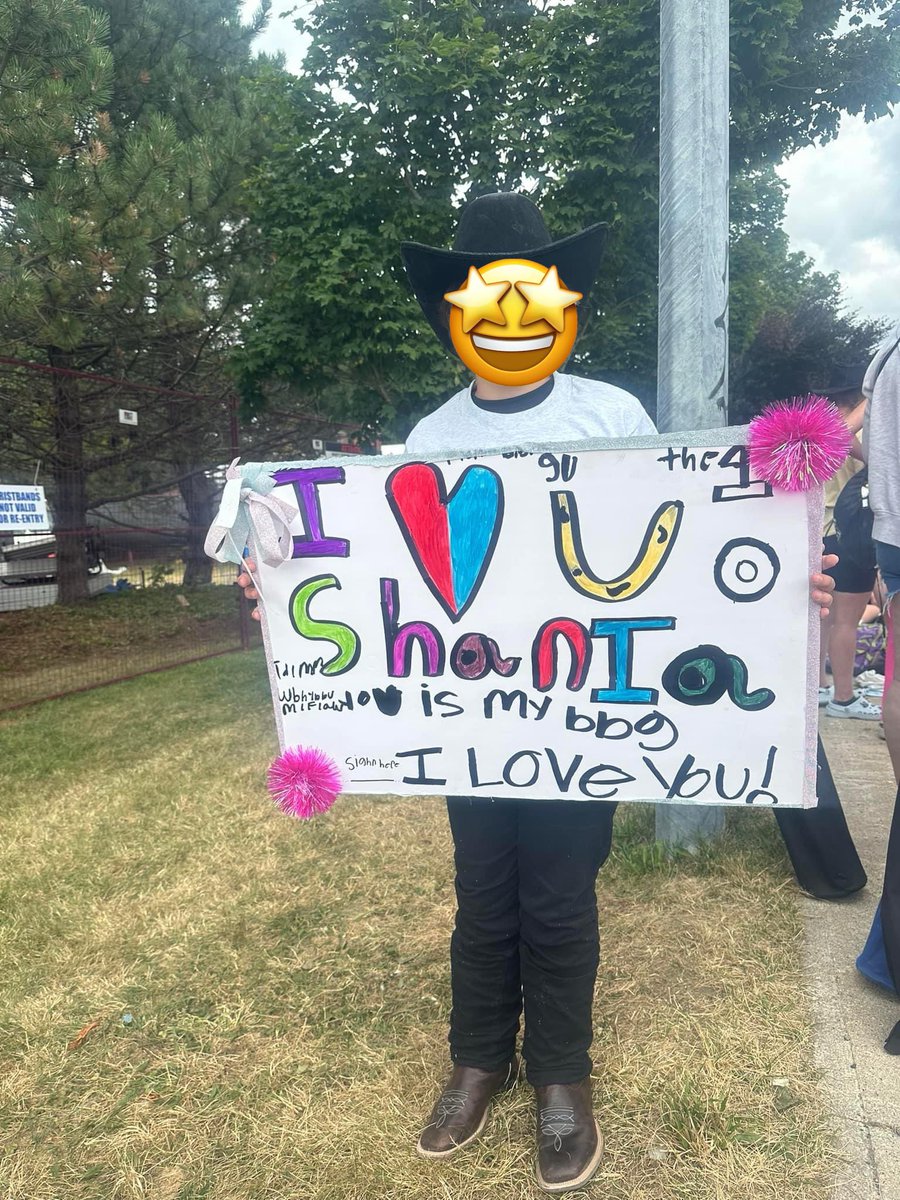 RISTBANDS
NOT VALID
OR RE-ENTRY
gu the 1
I U
Shania
is my bbg
Sighn here
I Love you!